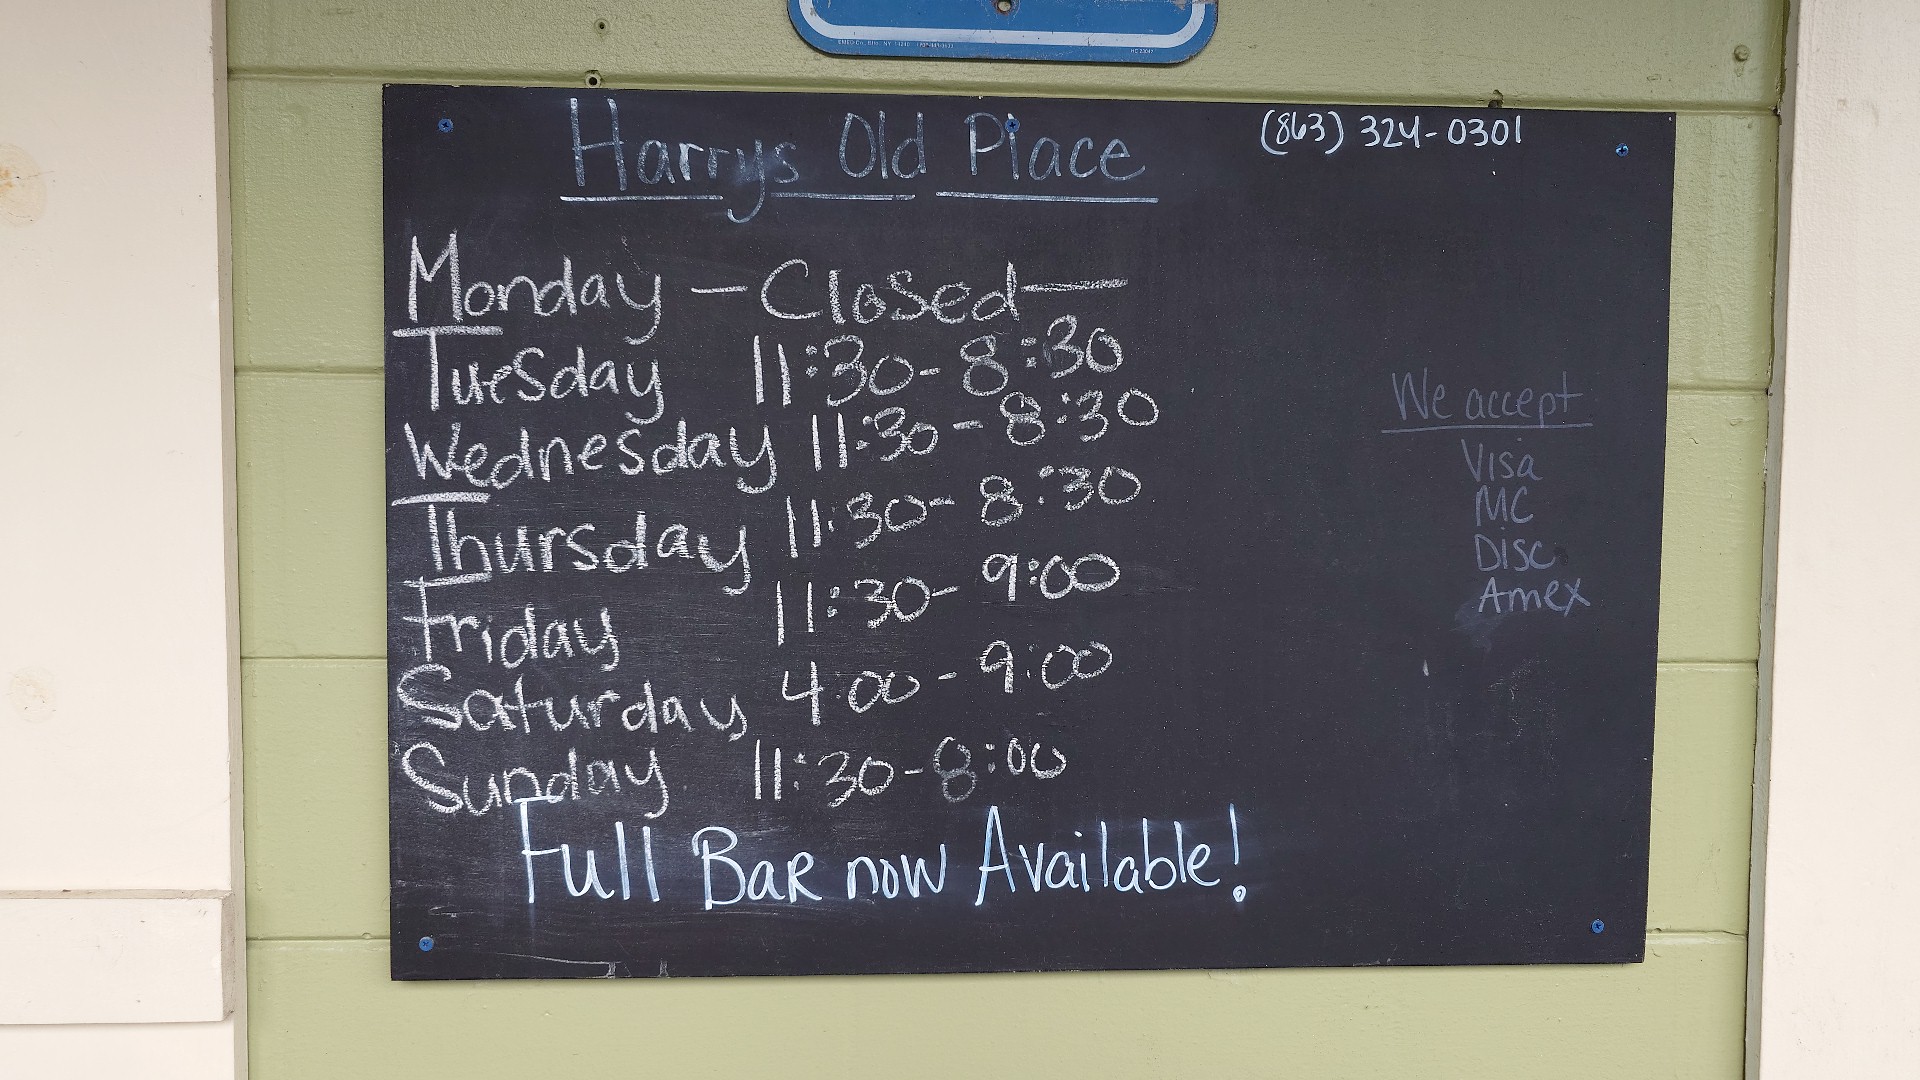 Harrys Old Place
(863) 324-0301
Monday - Closed -
Tuesday 11:30- 8:30
Wednesday 11:30 - 8:30
Thursday 11:30- 8:30
Friday 11:30- 9:00
Saturday 4:00 - 9:00
Sunday 11:30-8:00
Full Bar now Available!
We accept
Visa
MC
Disc
Amex